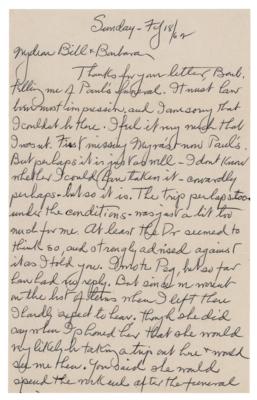 Sunday - Fy 18/62
My dear Bill & Barbara,
Thanks for your letter, Barb.
telling me of Paul's funeral. It must have
been most impressive, and I am sorry that
I couldn't be there. I feel it very much that
I was not. First missing Myra's now Paul's.
But perhaps it is just as well - I don't know
whether I could have taken it - cowardly
perhaps - but so it is. The trip perhaps too -
under the conditions - was just a bit too
much for me. At least the Dr seemed to
think so, and strongly advised against
it as I told you. I wrote Peg, but so far
have had no reply. But since in
on the list of when I left there
I hardly expect to hear. Though she did
say when I phoned her that she would
very likely be taking a trip out here & would
see me then. You said she would
spend the week end after the funeral